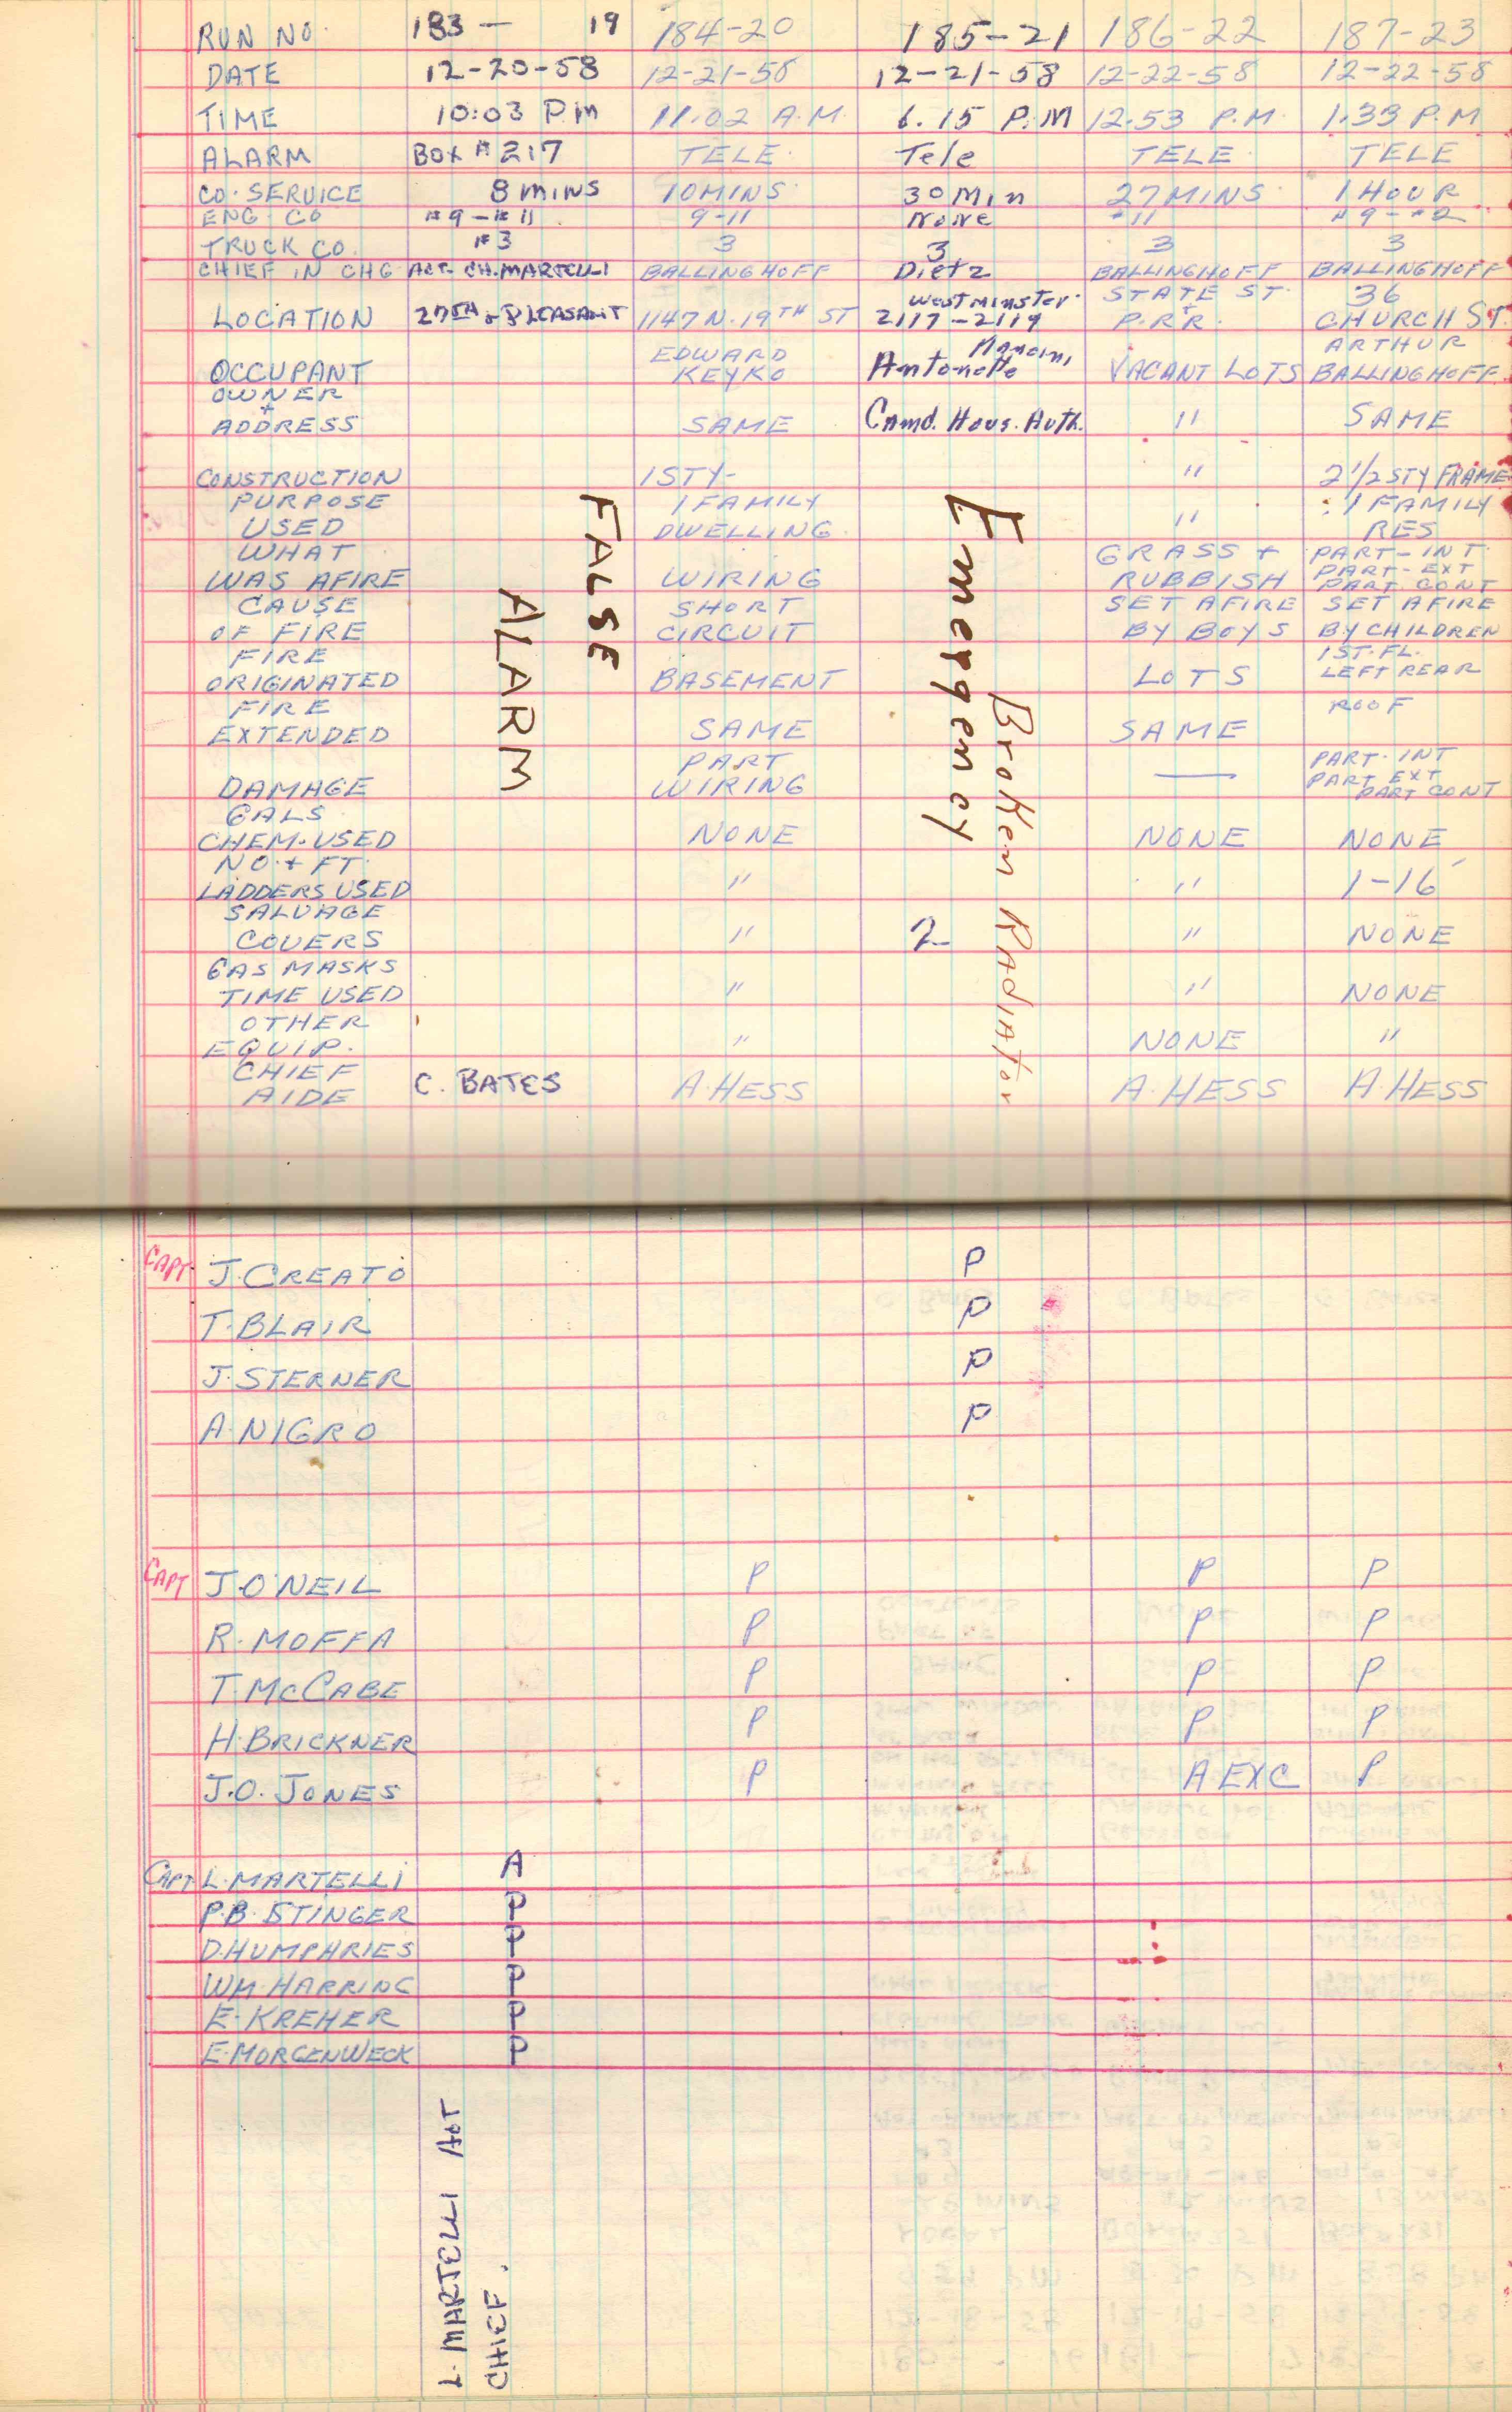 RUN NO. 183 — 19 184-20 185-21 186-22 187-23
DATE 12-20-58 12-21-58 12-21-58 12-22-58 12-22-58
TIME 10:03 P.M 11.02 A.M. 6.15 P.M 12.53 P.M. 1.39 P.M
ALARM BOX # 217 TELE. Tele TELE. TELE
CO. SERVICE 8 MINS 10 MINS. 30 Min 27 MINS. 1 HOUR
ENG. CO #9 - #11 9-11 None #11 #9 - #2
TRUCK CO. #3 3 3 3 3
CHIEF IN CHG ACT. CH. MARTELLI BALLINGHOFF Dietz BALLINGHOFF BALLINGHOFF
Westminster STATE ST. 36
LOCATION 27TH & PLEASANT 1147 N. 19TH ST 2117-2119 P.R.R. CHURCH ST.
EDWARD Mancini ARTHUR
OCCUPANT KEYKO VACANT LOTS BALLINGHOFF
OWNER
+
ADDRESS SAME Camd. Hous. Auth. " SAME
CONSTRUCTION 1 STY- " 2 1/2 STY FRAME
PURPOSE 1 FAMILY 1 FAMILY
USED DWELLING " RES
WHAT GRASS + PART-INT.
PART-EXT
WAS AFIRE WIRING RUBBISH PART. CONT
CAUSE SHORT SET AFIRE SET AFIRE
OF FIRE CIRCUIT BY BOYS BY CHILDREN
FIRE 1ST. FL.
ORIGINATED BASEMENT LOTS LEFT REAR
FIRE ROOF
EXTENDED SAME SAME
PART PART. INT
PART EXT
DAMAGE WIRING — PART CONT
GALS
CHEM. USED NONE NONE NONE
NO. + FT.
LADDERS USED " " 1-16'
SALVAGE
COVERS " 2 " NONE
GAS MASKS
TIME USED " " NONE
OTHER
EQUIP. " NONE "
CHIEF
AIDE C. BATES A. HESS A. HESS A. HESS
FALSE
ALARM
Emergency
Broken Radiator
CAPT J. CREATO P
T. BLAIR P
J. STERNER P
A. NIGRO P
CAPT J. O'NEIL P P P
R. MOFFA P P P
T. McCABE P P P
H. BRICKNER P P P
J.O. JONES P A EXC P
CAPT L. MARTELLI A
P.B. STINGER P
D. HUMPHRIES P
WM. HARRING P
E. KREHER P
E. MORGENWECK P
L. MARTELLI ACT
CHIEF.